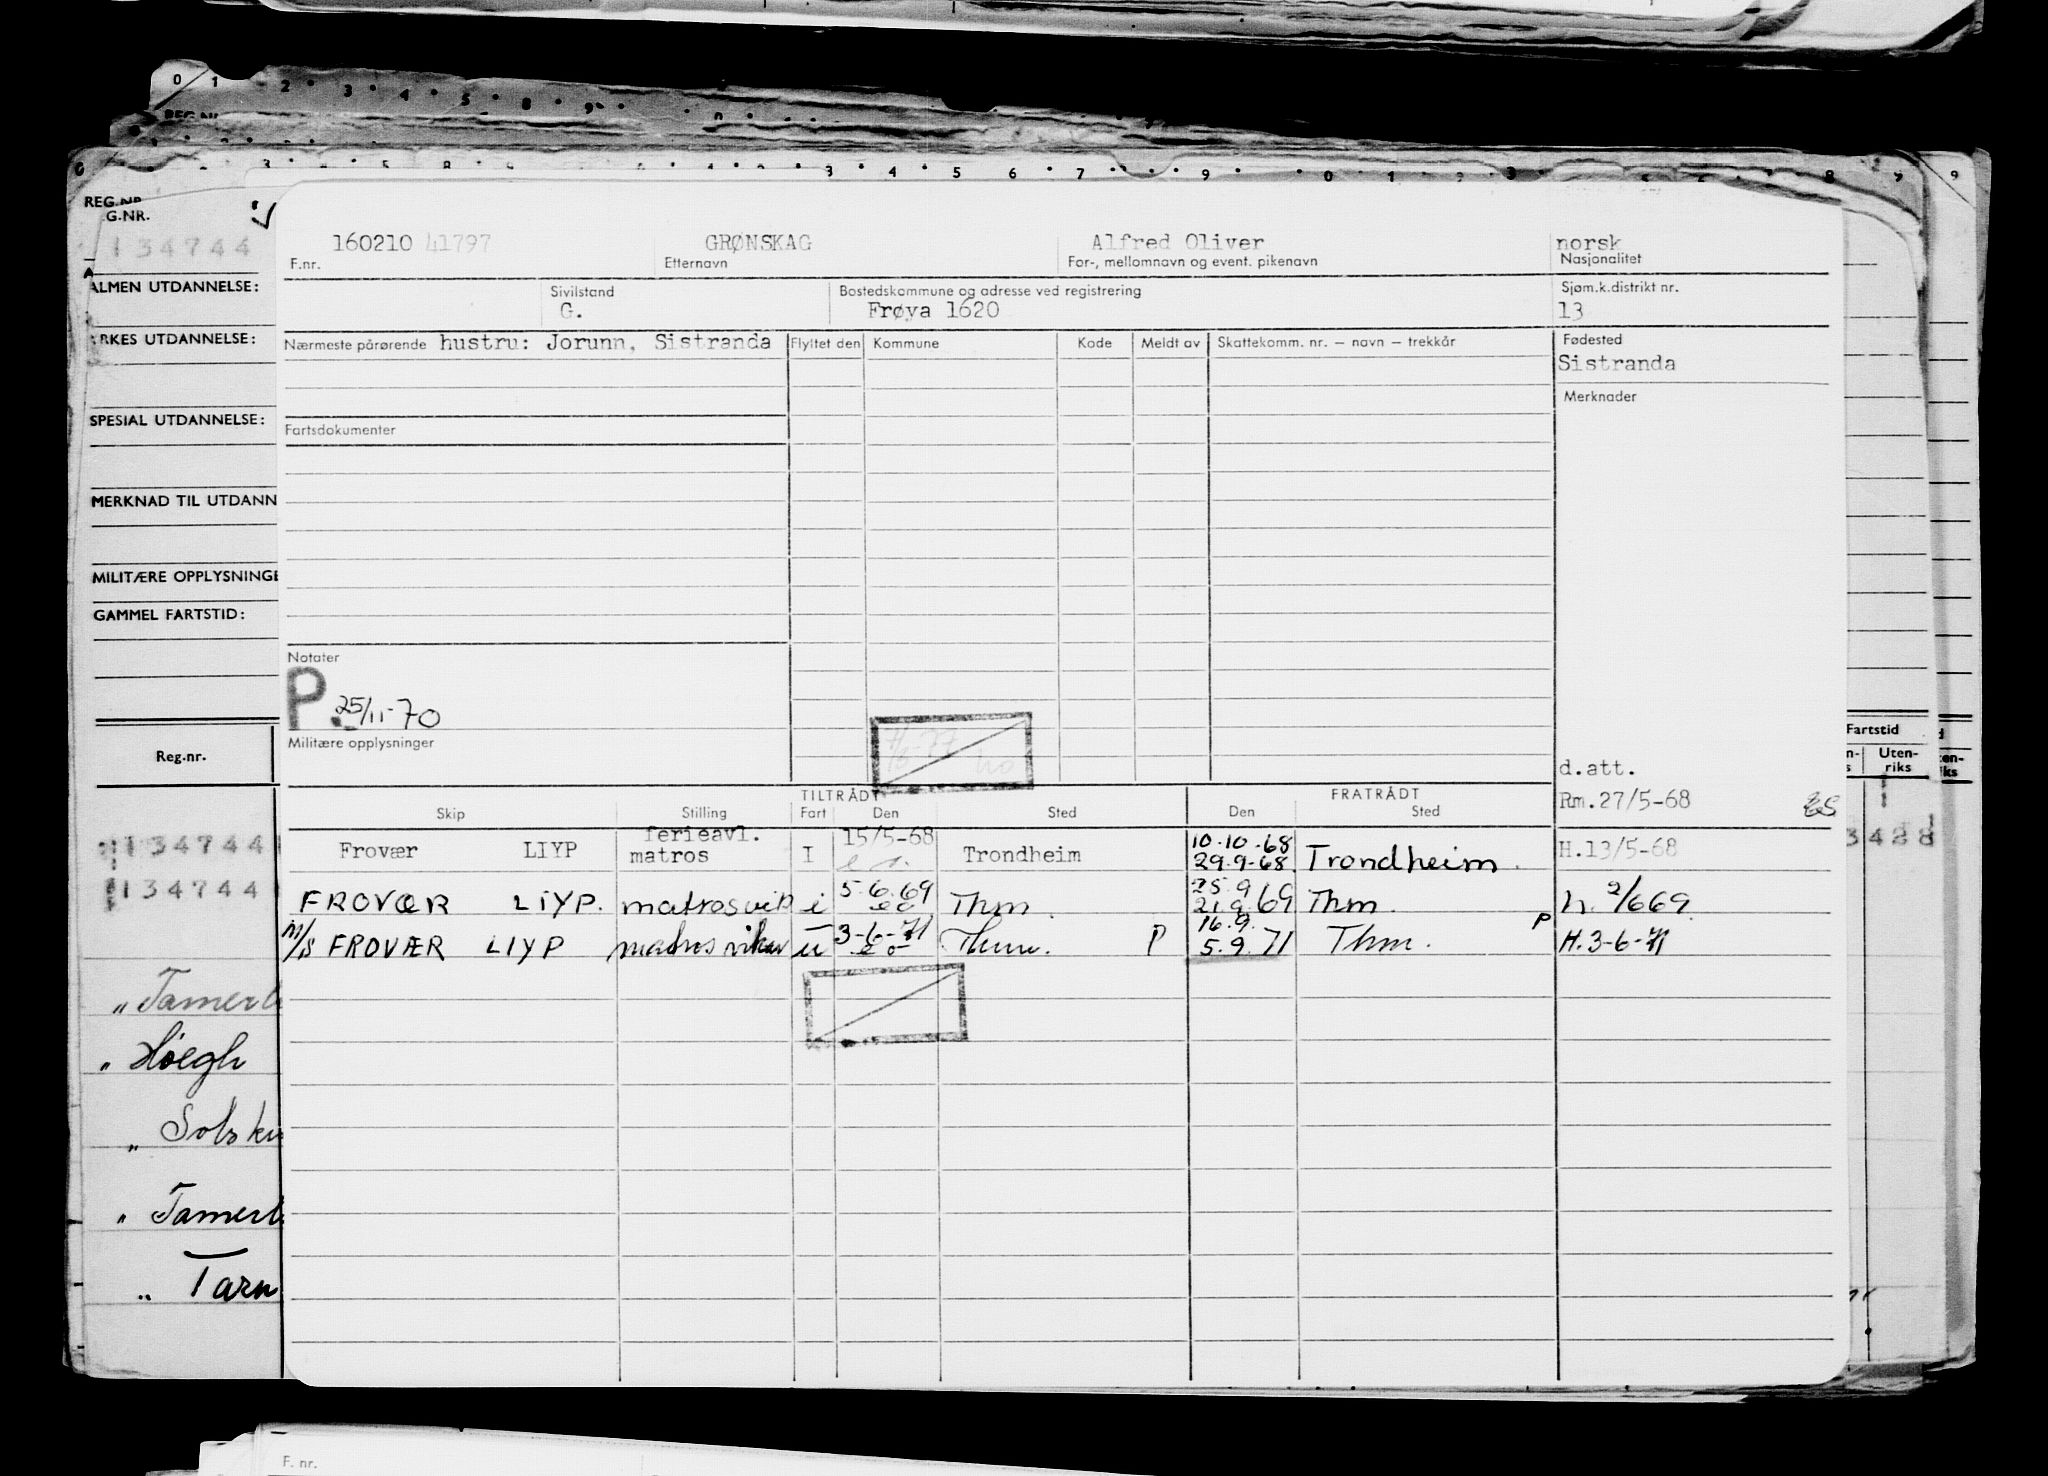 0 1 2 3 4 5 8 9
3 5 8 9 4 1 2 3 4 5 6 7 9 0 1 2 3 8 9
REG.NR.
G.NR.
134744
160210 41797 GRØNSKAG Alfred Oliver norsk
F.nr. Etternavn For-, mellomnavn og event. pikenavn Nasjonalitet
ALMEN UTDANNELSE:
Sivilstand Bostedskommune og adresse ved registrering Sjøm.k.distrikt nr.
G. Frøya 1620 13
YRKES UTDANNELSE:
Nærmeste pårørende hustru: Jorunn, Sistranda Flyttet den Kommune Kode Meldt av Skattekomm. nr. – navn – trekkår Fødested
Sistranda
Merknader
SPESIAL UTDANNELSE:
Fartsdokumenter
MERKNAD TIL UTDANN
MILITÆRE OPPLYSNINGE
GAMMEL FARTSTID:
Notater
P. 25/11-70
Militære opplysninger
Reg.nr. Fartstid
Uten-
riks
d.att.
Rm.27/5-68
TILTRÅDT FRATRÅDT
Skip Stilling Fart Den Sted Den Sted
ferieavl. 15/5-68 10.10.68
Frovær LIYP matros I Trondheim 29.9.68 Trondheim. H.13/5-68
134744 3428
5.6.69 25.9
FROVÆR LIYP. matrosvik i Thm. 21.9.69 Thm. h. 2/669
134744
3-6-71 16.9. P
M/S FROVÆR LIYP matros vikar u Thm. P 5.9.71 Thm. H.3-6-71
" Tamerl
" Höegh
" Solsku
" Tamerl
" Tarn
F. nr.